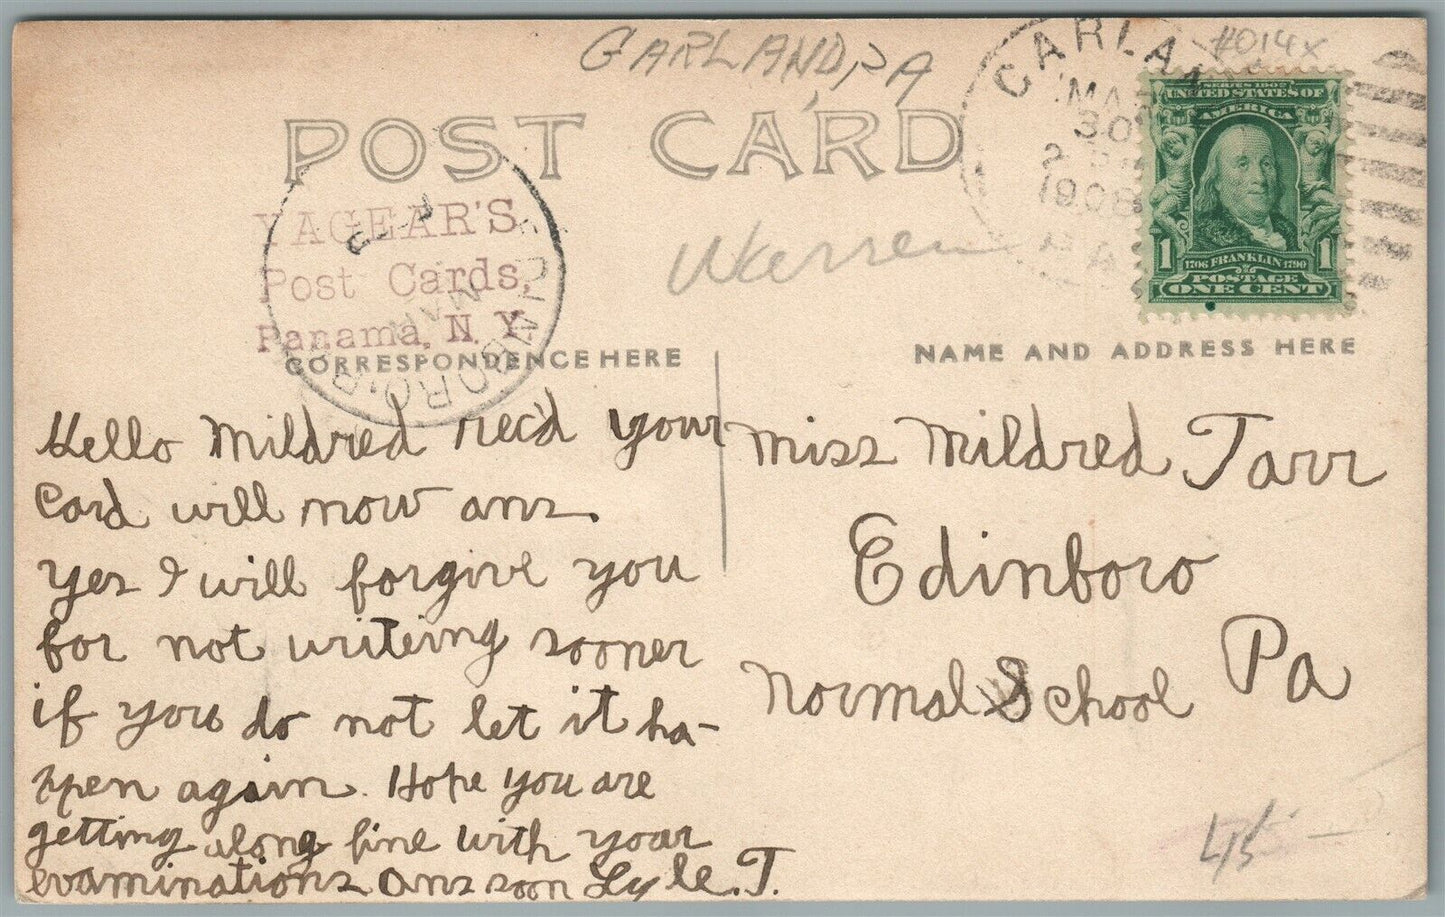 GARLAND, PA
#014X
POST CARD
GARLAN
MA
30
1908
PA
SERIES 1902
UNITED STATES OF
AMERICA
1 1
1706 FRANKLIN 1790
POSTAGE
ONE CENT
YAGEAR'S
Post Cards,
Panama, N. Y.
Warren
CORRESPONDENCE HERE
NAME AND ADDRESS HERE
Hello Mildred rec'd your
card will now ans.
yes I will forgive you
for not writeing sooner
if you do not let it ha-
ppen again. Hope you are
getting along fine with your
examinations ans soon Lyle. T.
Miss Mildred Tarr
Edinboro
Pa
Normal School